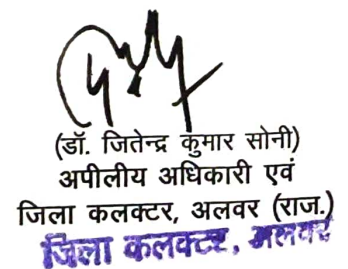 (डॉ. जितेन्द्र कुमार सोनी)
अपीलीय अधिकारी एवं
जिला कलक्टर, अलवर (राज.)
जिला कलक्टर, अलवर